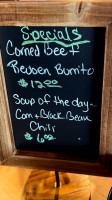 Specials
Corned Beef
Reuben Burrito
$12.00
Soup of the day-
Corn & Black Bean
Chili
$6.00